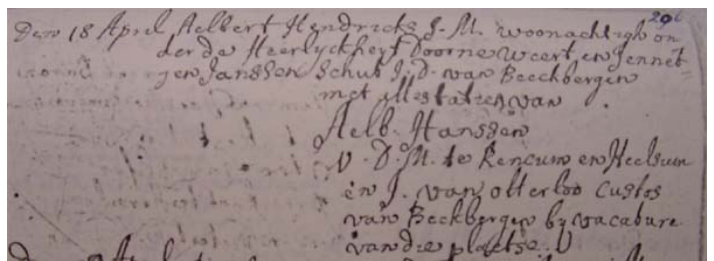 296
Den 18 April Aelbert Hendricks J. M. woonachtigh on
der de Heerlyckheyt Doorneweert en Jennet
jen Janssen Schut J. D. van Beeckbergen
met attestatien van
Aelb. Hanssen
V. D. M. te Rencum en Heelsum
en J. van otterloo Custos
van Beckbergen by vacature
van die plaetse